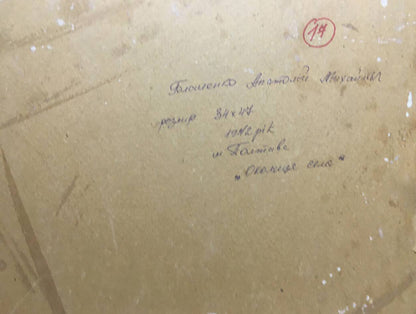 17
Анатолій Михайлович
розмір 34х47
1972 рік
м Полтава
"Околиця села"